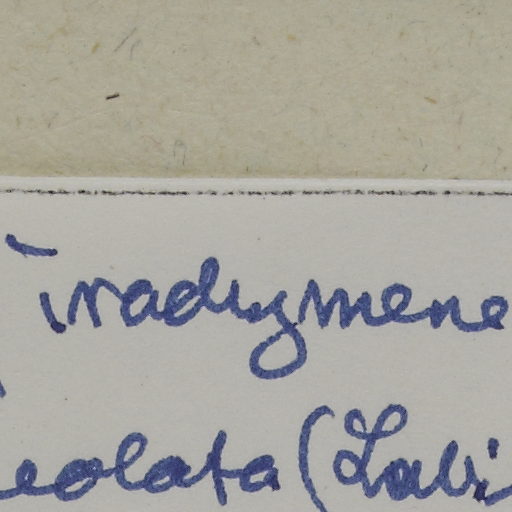 Tradymene
eolata (Labi